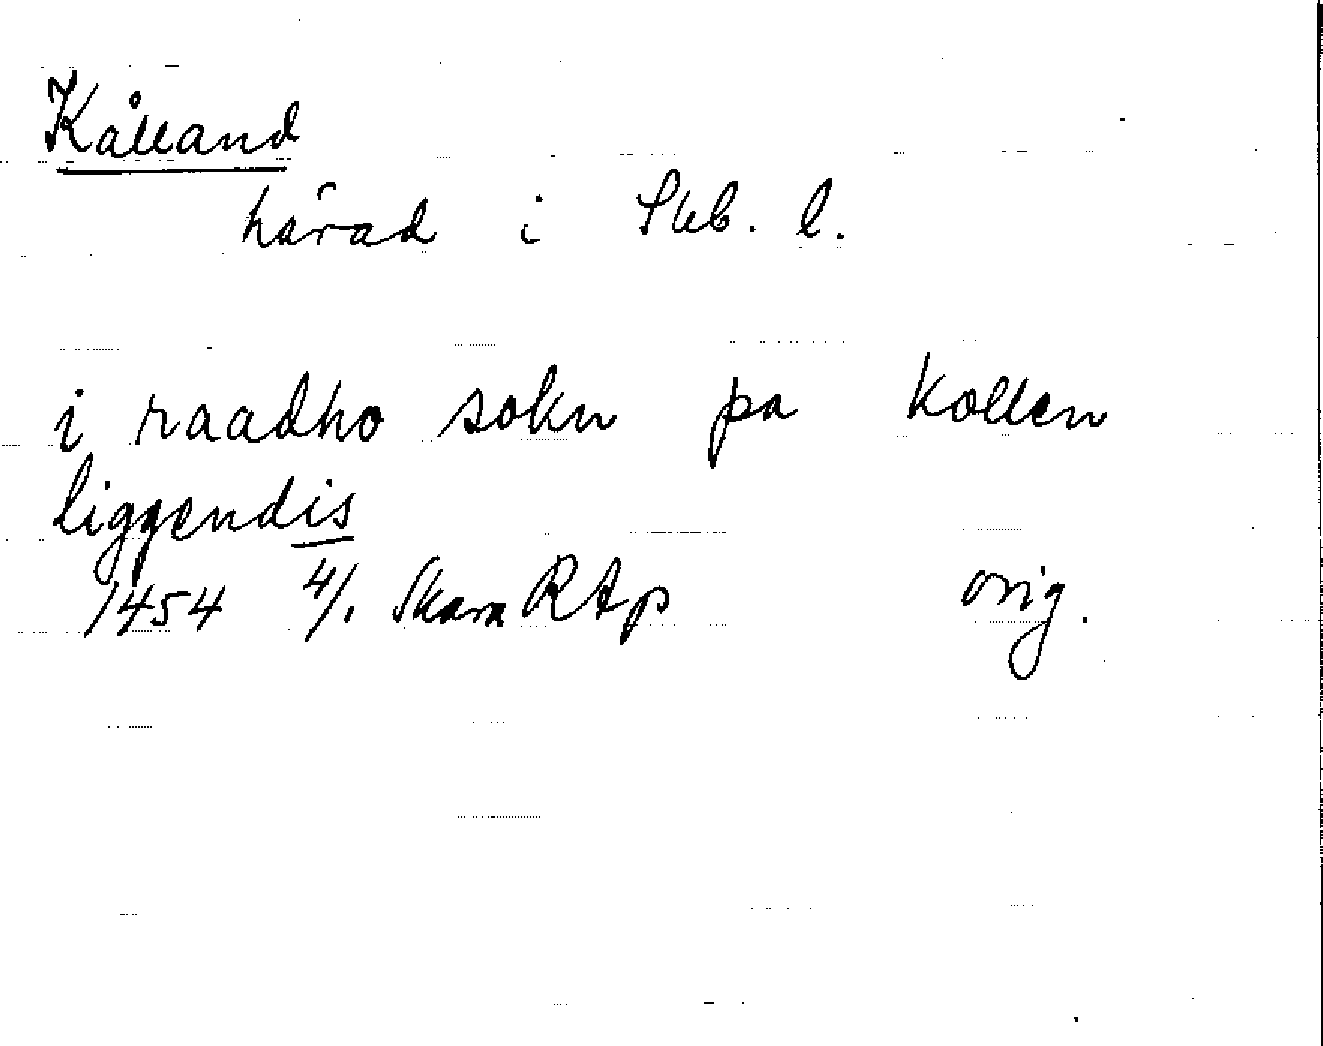 Kålland
härad i Skb. l.
i raadho sokn pa kollen
liggendis
1454 4/1 Skara RAp orig.